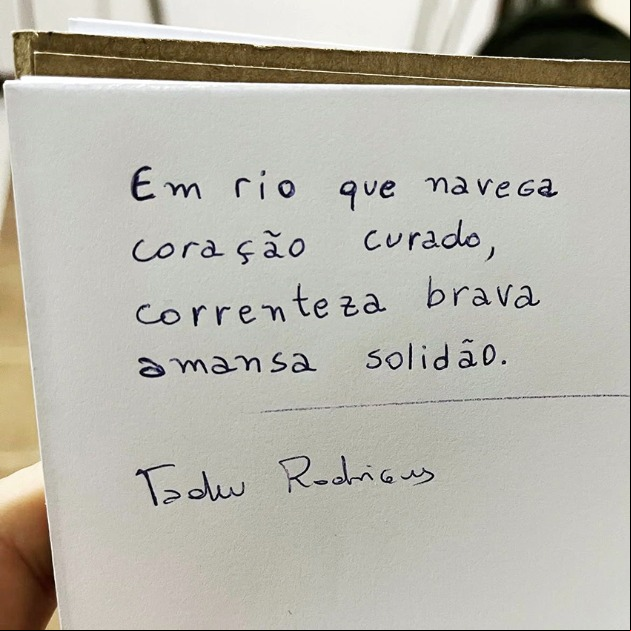 Em rio que navega
coração curado,
correnteza brava
amansa solidão.
Tadeu Rodrigues